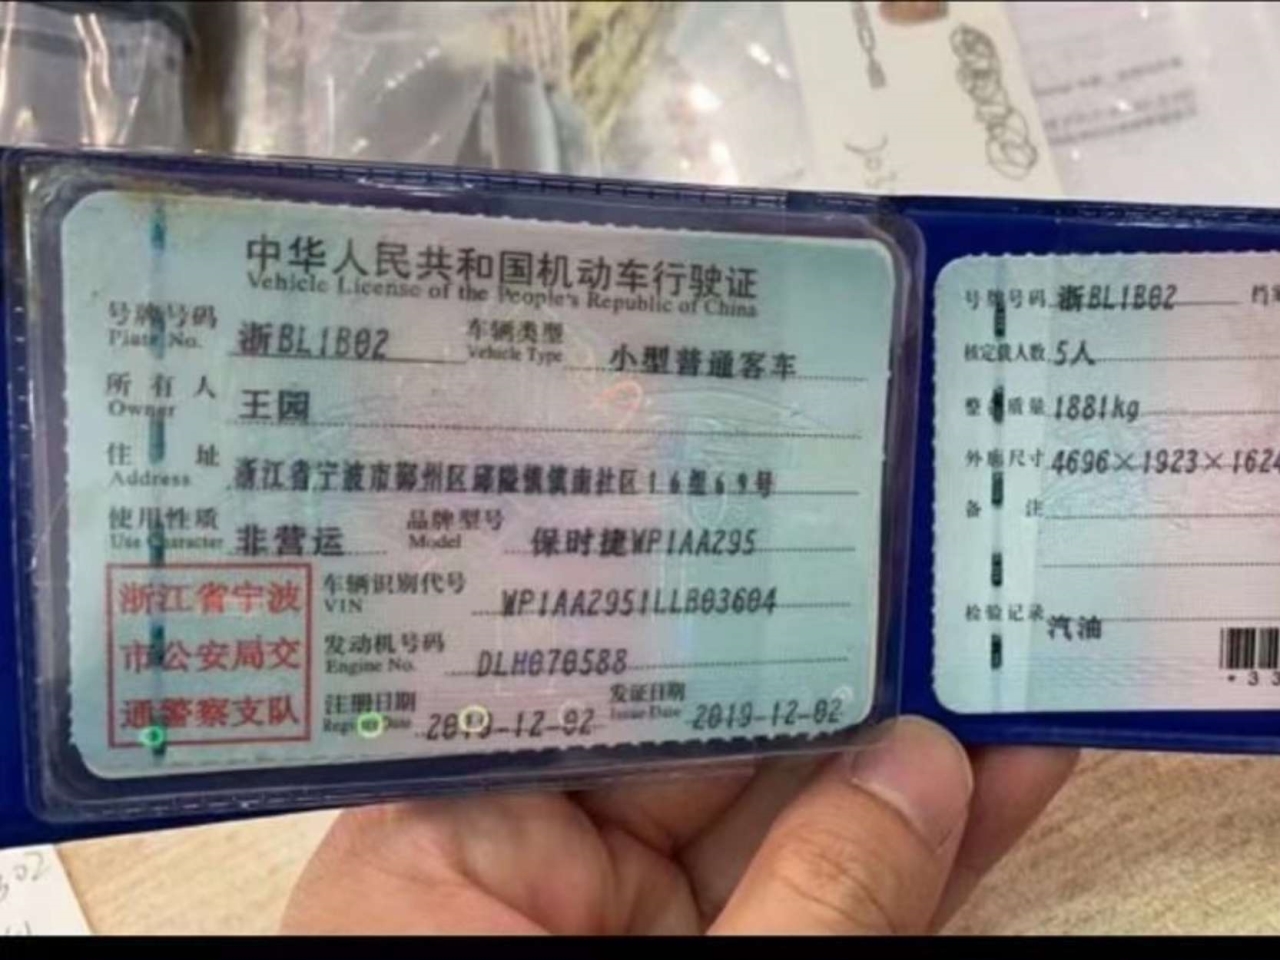 中华人民共和国机动车行驶证
Vehicle License of the People's Republic of China
号牌号码 浙BL1B02 车辆类型 小型普通客车
Plate No. Vehicle Type
所有人 王园
Owner
住址 浙江省宁波市鄞州区邱隘镇镇南社区16组69号
Address
使用性质 非营运 品牌型号 保时捷WP1AA295
Use Character Model
浙江省宁波
市公安局交
通警察支队
车辆识别代号 WP1AA2951LLB03604
VIN
发动机号码 DLH070588
Engine No.
注册日期 2019-12-02 发证日期 2019-12-02
Register Date Issue Date
号牌号码 浙BL1B02
核定载人数 5人
整备质量 1881kg
外廓尺寸 4696×1923×1624
备注
检验记录 汽油